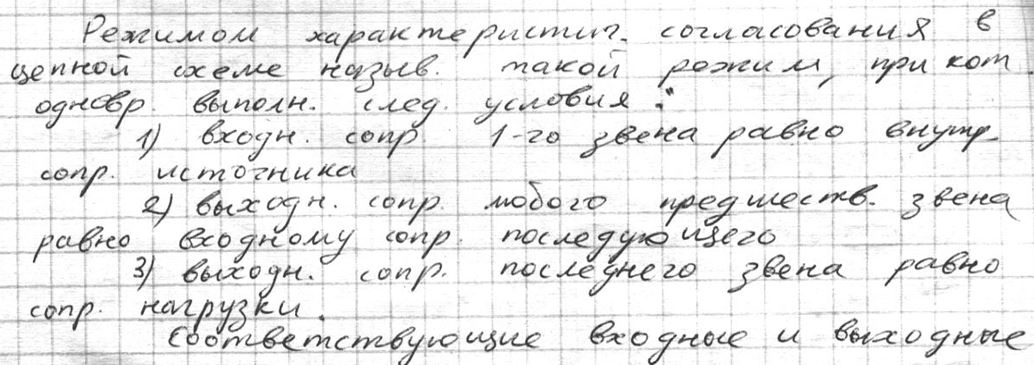 Режимом характеристич. согласования в
цепной схеме назыв. такой режим, при кот.
одновр. выполн. след. условия :
1) входн. сопр 1-го звена равно внутр.
сопр. источника
2) выходн. сопр. любого предшеств. звена
равно входному сопр. последующего
3) выходн. сопр. последнего звена равно
сопр. нагрузки.
Соответствующие входные и выходные